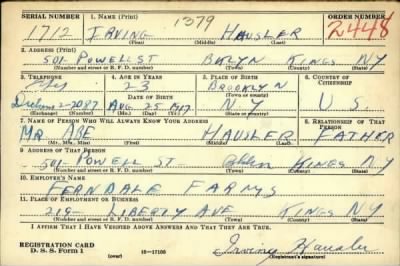 SERIAL NUMBER 1. NAME (Print) ORDER NUMBER
1712 IRVING 1379 HAUSLER 2448
(First) (Middle) (Last)
2. ADDRESS (Print)
501- POWELL ST BKLYN KINGS NY
(Number and street or R. F. D. number) (Town) (County) (State)
3. TELEPHONE 4. AGE IN YEARS 5. PLACE OF BIRTH 6. COUNTRY OF CITIZENSHIP
23 BROOKLYN
DATE OF BIRTH
2-2087 AUG 25 1917 NY U.S.
(Exchange) (Number) (Mo.) (Day) (Yr.) (State or country)
7. NAME OF PERSON WHO WILL ALWAYS KNOW YOUR ADDRESS 8. RELATIONSHIP OF THAT PERSON
MR ABE HAUSLER FATHER
(Mr., Mrs., Miss) (First) (Middle) (Last)
9. ADDRESS OF THAT PERSON
501- POWELL ST Bkln KINGS NY
(Number and street or R. F. D. number) (Town) (County) (State)
10. EMPLOYER'S NAME
FERNDALE FARMS
11. PLACE OF EMPLOYMENT OR BUSINESS
219- LIBERTY AVE KINGS NY
(Number and street or R. F. D. number) (Town) (County) (State)
I AFFIRM THAT I HAVE VERIFIED ABOVE ANSWERS AND THAT THEY ARE TRUE.
REGISTRATION CARD
D. S. S. Form 1 16-17105 Irving Hausler
(Registrant's signature)